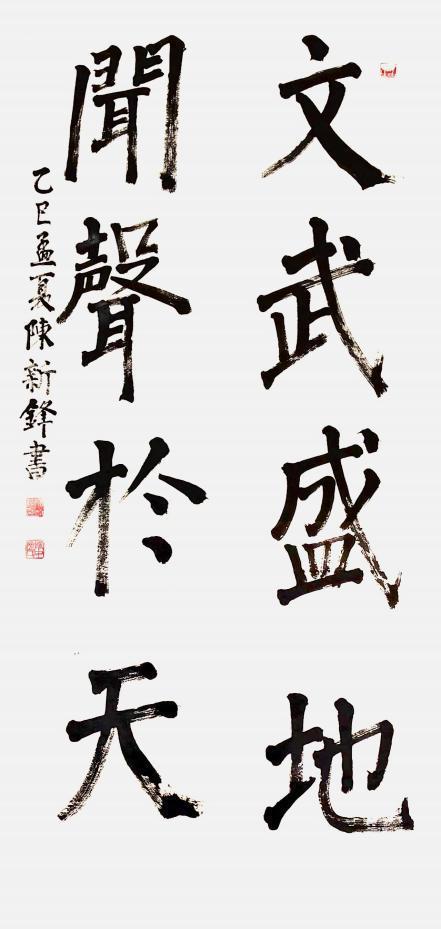 文武盛地
聞聲於天
乙巳孟夏陳新鋒書